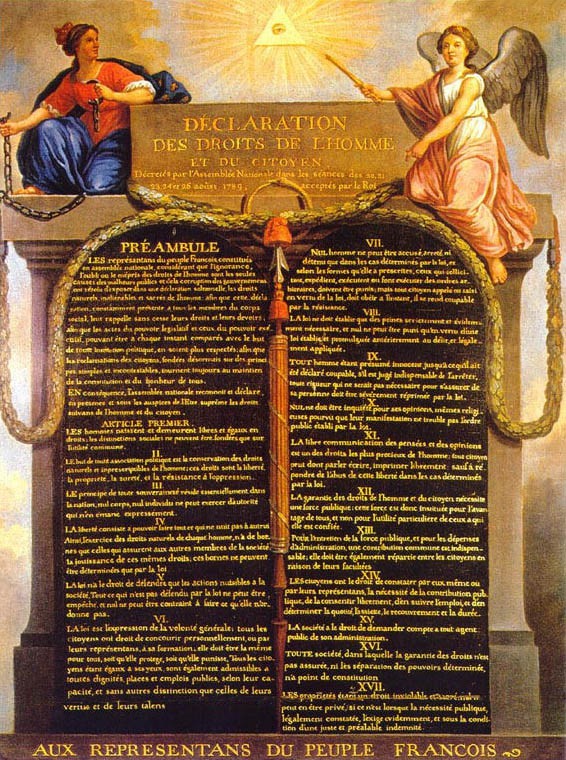 DÉCLARATION
DES DROITS DE L'HOMME
ET DU CITOYEN,
Décretés par l'Assemblée Nationale dans les séances des 20, 21
23, 24 et 26 août 1789, acceptés par le Roi
PRÉAMBULE
LES représentans du peuple Francois, constitués
en assemblée nationale, considérant que l'ignorance,
l'oubli ou le mépris des droits de l'homme sont les seules
causes des malheurs publics et de la corruption des gouvernemens
ont résolu d'exposer dans une déclaration solemnelle, les droits
naturels, inaliénables et sacrés de l'homme; afin que cette décla-
ration, constamment présente à tous les membres du corps
social, leur rappelle sans cesse leurs droits et leurs devoirs;
afin que les actes du pouvoir legislatif et ceux du pouvoir ex-
écutif, pouvant être à chaque instant comparés avec le but
de toute institution politique, en soient plus respectés; afin que
les reclamations des citoyens, fondées désormais sur des princi-
pes simples et incontestables, tournent toujours au maintien
de la constitution et du bonheur de tous.
EN conséquence, l'assemblée nationale reconnoit et déclare,
en presence et sous les auspices de l'Etre suprême les droits
suivans de l'homme et du citoyen.
ARTICLE PREMIER.
LES hommes naissent et demeurent libres et égaux en
droits; les distinctions sociales ne peuvent être fondées que sur
l'utilité commune.
II.
LE but de toute association politique est la conservation des droits
naturels et imprescriptibles de l'homme; ces droits sont la liberté,
la propriété, la sureté, et la résistance à l'oppression.
III.
LE principe de toute souveraineté réside essentiellement dans
la nation, nul corps, nul individu ne peut exercer d'autorité
qui n'en émane expressement.
IV.
LA liberté consiste a pouvoir faire tout ce qui ne nuit pas à autrui
Ainsi, l'exercice des droits naturels de chaque homme, n'a de bor-
nes que celles qui assurent aux autres membres de la société
la jouissance de ces mêmes droits; ces bornes ne peuvent
être déterminées que par la loi
V.
LA loi n'a le droit de défendre que les actions nuisibles à la
société. Tout ce qui n'est pas défendu par la loi ne peut être
empêché, et nul ne peut être contraint à faire ce qu'elle n'or-
donne pas.
VI.
LA loi est l'expression de la volonté générale; tous les
citoyens ont droit de concourir personnellement, ou par
leurs représentans, à sa formation; elle doit être la même
pour tous, soit qu'elle protege, soit qu'elle punisse. Tous les cito-
yens étant égaux à ses yeux, sont également admissibles à
toutes dignités, places et emplois publics, selon leur ca-
pacité, et sans autres distinction que celles de leurs
vertus et de leurs talens
VII.
NUL homme ne peut être accusé, arreté, ni
détenu que dans les cas déterminés par la loi, et
selon les formes qu'elle a prescrites, ceux qui sollici-
tent, expédient, exécutent ou font exécuter des ordres ar-
bitraires, doivent être punis; mais tout citoyen appelé ou saisi
en vertu de la loi, doit obéir a l'instant, il se rend coupable
par la résistance.
VIII.
LA loi ne doit établir que des peines strictement et évidem-
ment nécessaire, et nul ne peut être puni qu'en vertu d'une
loi établie et promulguée antérierement au délit, et légale-
ment appliquée.
IX.
TOUT homme étant présumé innocent jusqu'a ce qu'il ait
été déclaré coupable, s'il est jugé indispensable de l'arrêter,
toute rigueur qui ne serait pas nécessaire pour s'assurer de
sa personne doit être sévèrement réprimée par la loi.
X.
NUL ne doit être inquiété pour ses opinions, mêmes religi-
euses pourvu que leur manifestation ne trouble pas l'ordre
public établi par la loi.
XI.
LA libre communication des pensées et des opinions
est un des droits les plus precieux de l'homme; tout citoyen
peut donc parler écrire, imprimer librement; sauf à ré-
pondre de l'abus de cette liberté dans les cas déterminés
par la loi.
XII.
LA garantie des droits de l'homme et du citoyen nécessite
une force publique; cette force est donc instituée pour l'avan-
tage de tous, et non pour l'utilité particuliere de ceux a qui
elle est confiée.
XIII.
Pour l'entretien de la force publique, et pour les dépenses
d'administration, une contribution commune est indispen-
sable; elle doit être également répartie entre les citoyens en
raison de leurs facultées
XIV.
LES citoyens ont le droit de constater par eux même ou
par leurs représentans, la nécessité de la contribution pub-
lique, de la consentir librement, d'en suivre l'emploi, et d'en
déterminer la quotité, l'assiette, le recouvrement et la durée.
XV.
LA société a le droit de demander compte a tout agent
public de son administration.
XVI.
TOUTE société, dans laquelle la garantie des droits n'est
pas assurée, ni les séparation des pouvoirs déterminée,
n'a point de constitution
XVII.
LES propriétés étant un droit inviolable et sacré, nul ne
peut en être privé, si ce n'est lorsque la nécessité publique,
légalement constatée, l'exige evidemment, et sous la condi-
tion d'une juste et préalable indemnité.
AUX REPRESENTANS DU PEUPLE FRANCOIS